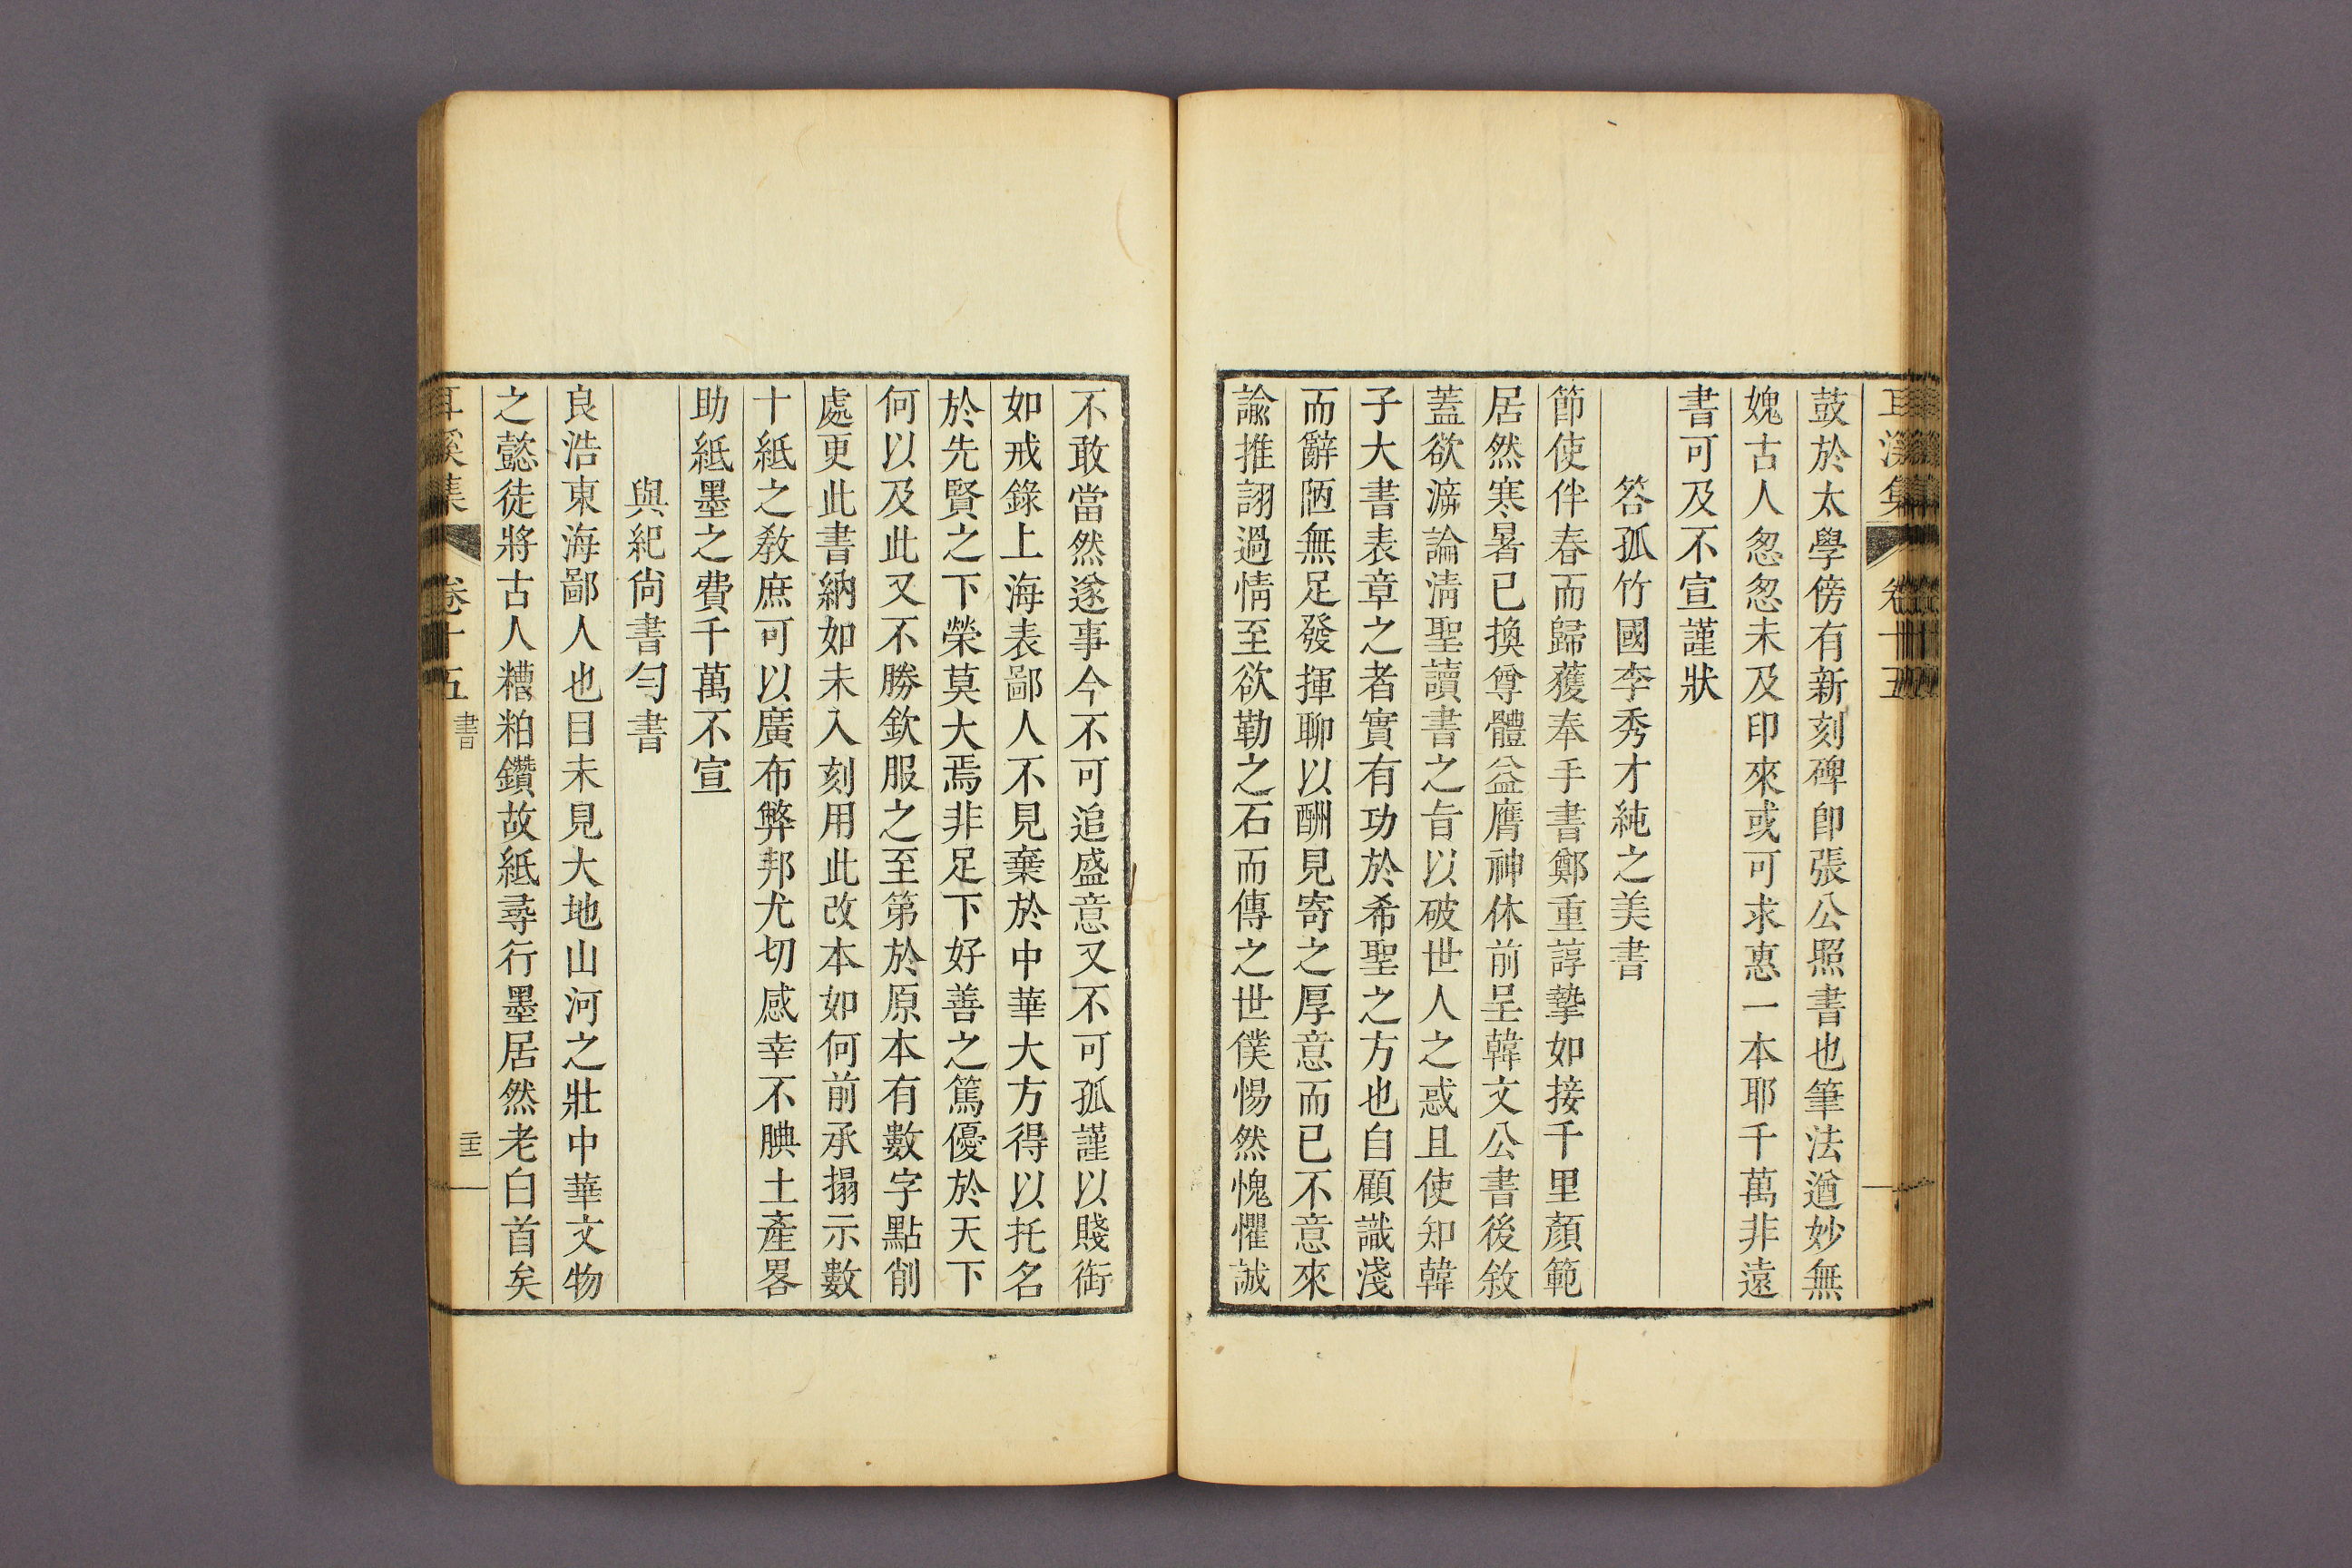 耳溪集 卷十五
鼓於太學傍有新刻碑卽張公照書也筆法遒妙無
媿古人怱怱未及印來或可求惠一本耶千萬非遠
書可及不宣謹狀
答孤竹國李秀才純之美書
節使伴春而歸獲奉手書鄭重諄摯如接千里顏範
居然寒暑已換尊體益膺神休前呈韓文公書後敘
蓋欲㴑論淸聖讀書之旨以破世人之惑且使知韓
子大書表章之者實有功於希聖之方也自顧識淺
而辭陋無足發揮聊以酬見寄之厚意而已不意來
諭推詡過情至欲勒之石而傳之世僕惕然愧懼誠
不敢當然遂事今不可追盛意又不可孤謹以賤銜
如戒錄上海表鄙人不見棄於中華大方得以托名
於先賢之下榮莫大焉非足下好善之篤優於天下
何以及此又不勝欽服之至第於原本有數字點削
處更此書納如未入刻用此改本如何前承搨示數
十紙之敎庶可以廣布弊邦尤切感幸不腆土產畧
助紙墨之費千萬不宣
與紀尙書勻書
良浩東海鄙人也目未見大地山河之壯中華文物
之懿徒將古人糟粕鑽故紙尋行墨居然老白首矣
耳溪集 卷十五 書 二十三